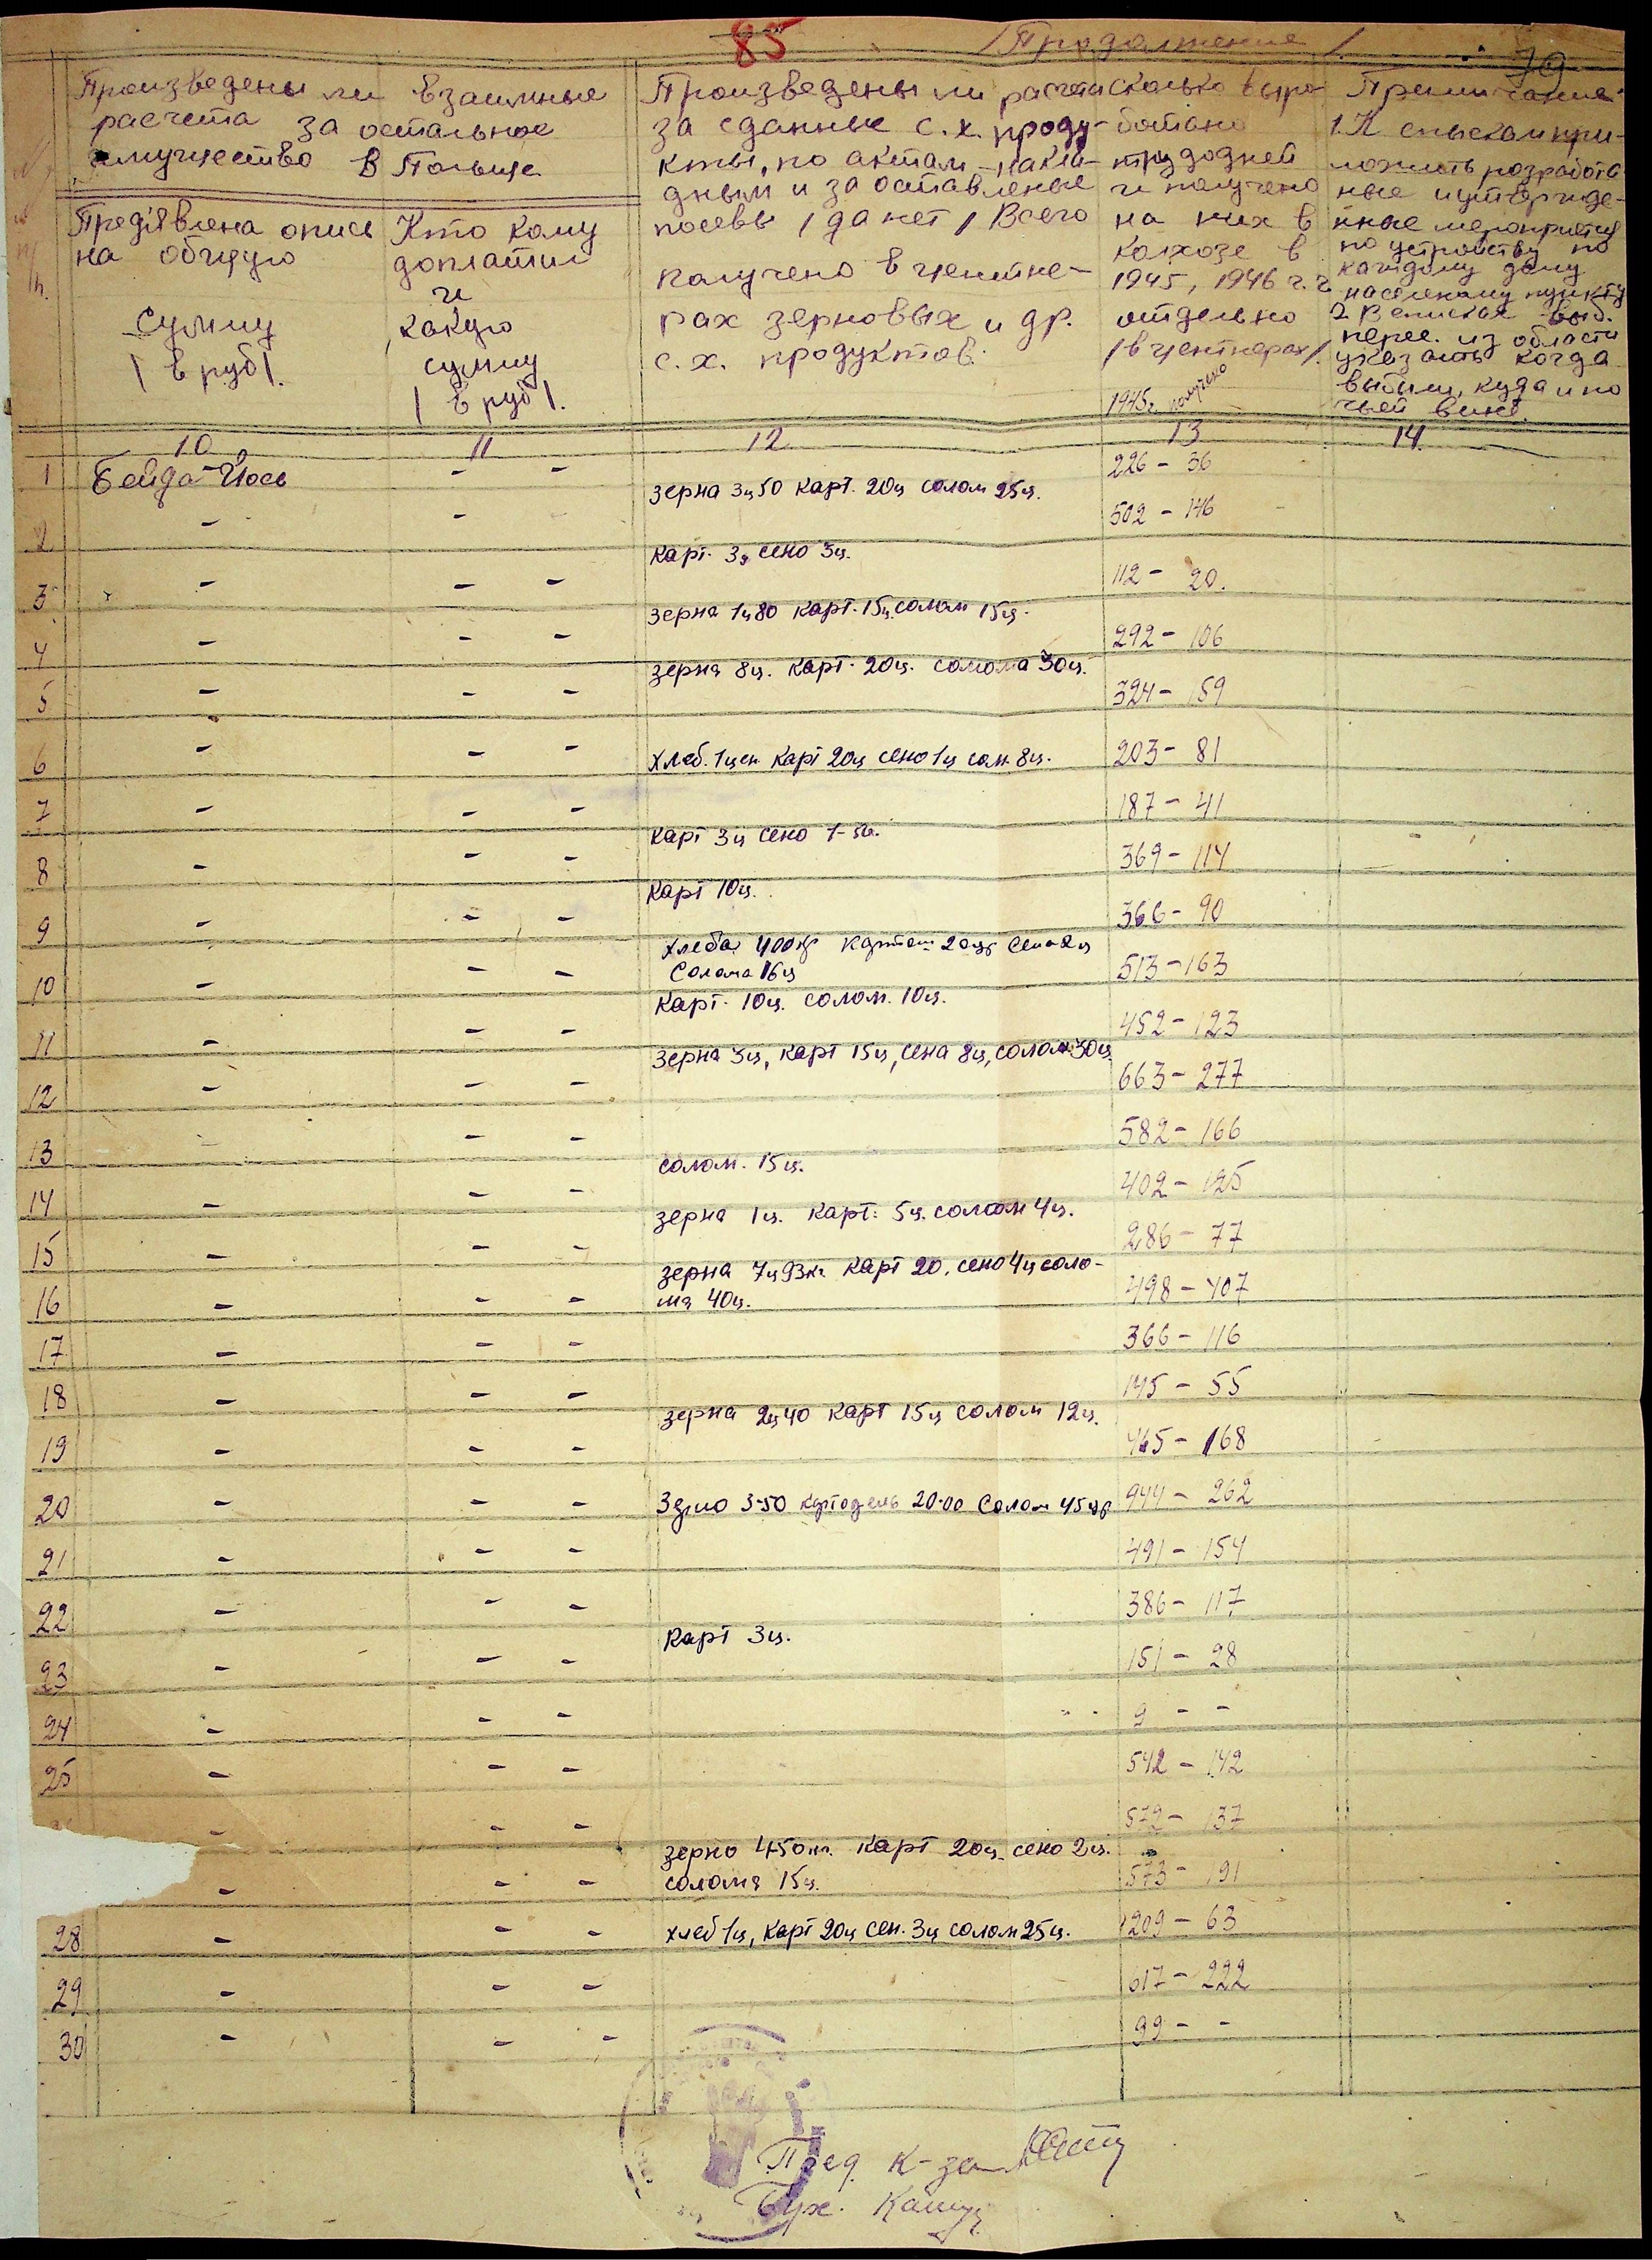 85
/Продолжение/
79
Произведены ли взаимные
расчета за остальное
имущество в Польще
Предявлена опись
на общую
сумму
/ в руб/.
Кто кому
доплатил
и
какую
сумму
/ в руб/.
Произведены ли расчеты
за сданные с.х. проду-
кты, по актам-накла-
дным и за оставленые
посевы / да нет / Всего
получено в центне-
рах зерновых и др.
с.х. продуктов.
Сколько выра-
ботано
трудодней
и получено
на них в
колхозе в
1945, 1946 г.г.
отдельно
/ в центнерах/.
1945г. получено
Примичание
1. К спискам при-
ложить розработа-
ные и утвержде-
нные мероприятия
по устройству по
каждому дому
населеному пункту
2. В списках выб.
перес. из области
указать когда
выбыли, куда и по
чьей вине.
10 11 12 13 14.
1 Бейда Йось - - зерна 3ц50 карт. 20ц солом 25ц. 226 - 36
2 - - карт. 3ц сено 3ц. 502 - 146
3 - - - зерна 1ц80 карт. 15ц. солом 15ц. 112 - 20.
4 - - - зерна 8ц. карт. 20ц. солома 30ц. 292 - 106
5 - - - 324 - 159
6 - - - хлеб. 1цен карт 20ц сено 1ц сол. 8ц. 203 - 81
7 - - - карт 3ц сено 1- 187 - 41
8 - - - карт 10ц. 369 - 114
9 - - - хлеба 400кг 20цр Сена 2ц 366 - 90
Солома 16ц
10 - - - карт. 10ц. солом. 10ц. 513 - 163
11 - - - зерна 3ц, карт 15ц, сена 8ц, солом 30ц. 452 - 123
12 - - - 663 - 277
13 - - - солом. 15ц. 582 - 166
14 - - - зерна 1ц. карт. 5ц. солом 4ц. 402 - 125
15 - - - зерна 7ц93кг карт 20. сено 4ц соло- 286 - 77
16 - - - ма 40ц. 498 - 407
17 - - - 366 - 116
18 - - - зерна 2ц40 карт 15ц солом 12ц. 145 - 55
19 - - - 465 - 168
20 - - - 3-50 20-00 Солом 45цр 944 - 262
21 - - - 491 - 154
22 - - - карт 3ц. 386 - 117
23 - - - 151 - 28
24 - - - 9 - -
25 - - - 542 - 142
- - - зерно 450кг. карт 20ц. сено 2ц. 572 - 137
- - - солома 15ц. 573 - 191
28 - - - хлеб 1ц, карт 20ц сен. 3ц солом 25ц. 209 - 63
29 - - - 617 - 222
30 - - - 99 - -
Пред. к-за
Бух.